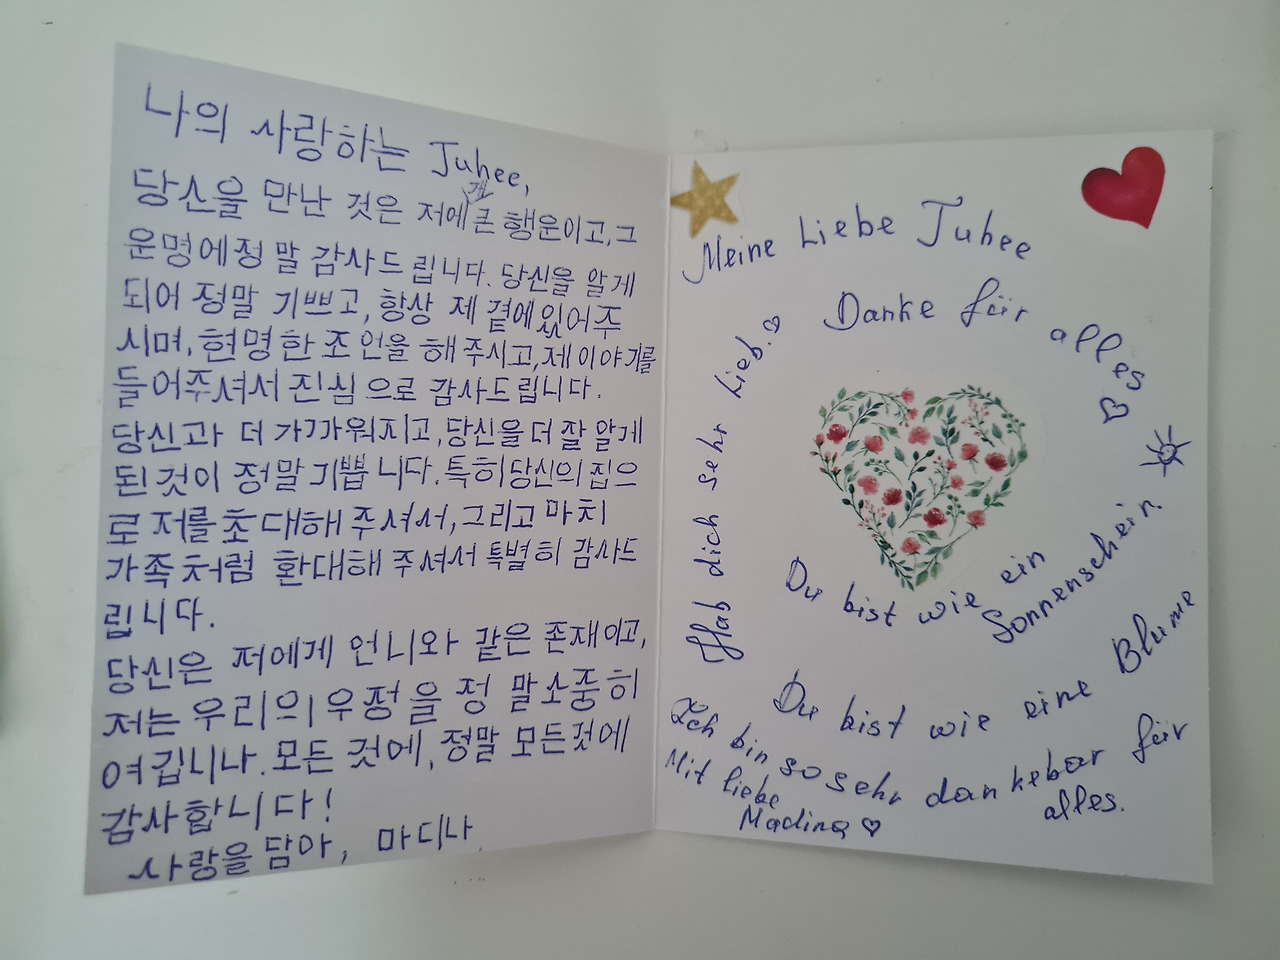 나의 사랑하는 Juhee,
당신을 만난 것은 저에게 큰 행운이고, 그
운명에 정말 감사드립니다. 당신을 알게
되어 정말 기쁘고, 항상 제 곁에 있어주
시며, 현명한 조언을 해주시고, 제 이야기를
들어주셔서 진심으로 감사드립니다.
당신과 더 가까워지고, 당신을 더 잘 알게
된 것이 정말 기쁩니다. 특히 당신의 집으
로 저를 초대해 주셔서, 그리고 마치
가족처럼 환대해 주셔서 특별히 감사드
립니다.
당신은 저에게 언니와 같은 존재이고,
저는 우리의 우정을 정말 소중히
여깁니나. 모든 것에, 정말 모든것에
감사합니다!
사랑을 담아, 마디나
Meine Liebe Juhee
Danke für alles
Hab dich sehr Lieb.
Du bist wie ein
Sonnenschein.
Du bist wie eine Blume
Ich bin so sehr dankebar für
alles.
Mit liebe
Madina